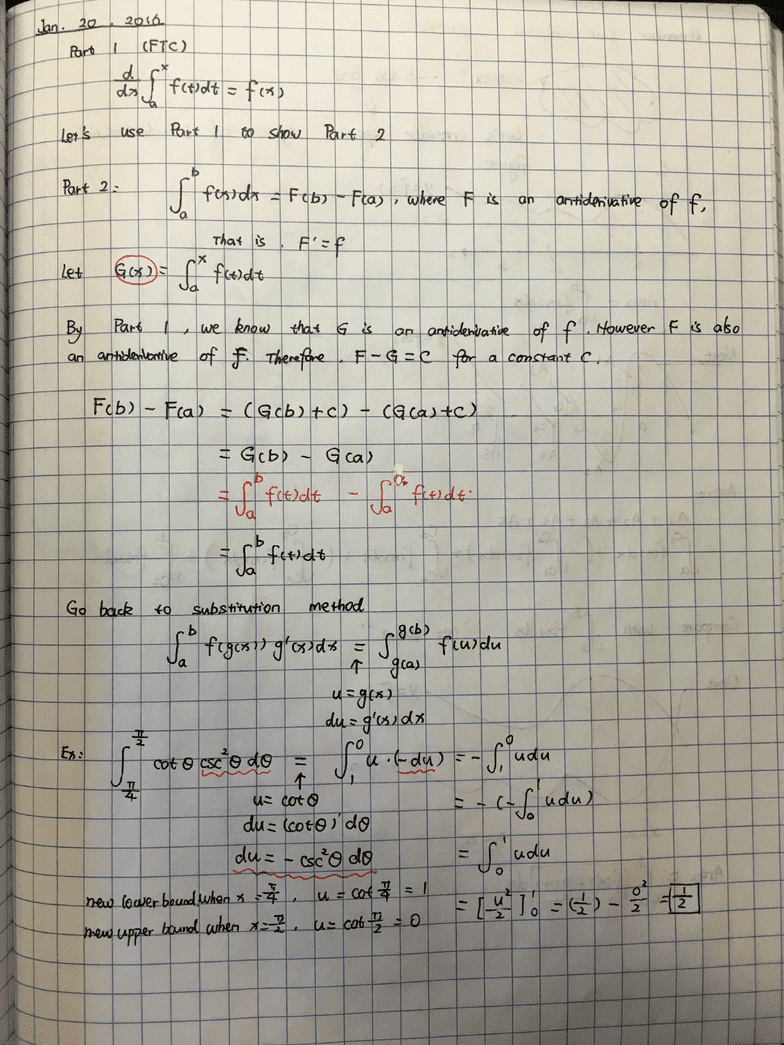 Jan. 20. 2016
Part 1 (FTC)
d/dx ∫_a^x f(t)dt = f(x)
Let's use Part 1 to show Part 2
Part 2: ∫_a^b f(x)dx = F(b) - F(a), where F is an antiderivative of f,
That is, F' = f
Let G(x) = ∫_a^x f(t)dt
By Part 1, we know that G is an antiderivative of f. However F is also
an antiderivative of f. Therefore, F-G=C for a constant C.
F(b) - F(a) = (G(b)+C) - (G(a)+C)
= G(b) - G(a)
= ∫_a^b f(t)dt - ∫_a^a f(t)dt
= ∫_a^b f(t)dt
Go back to substitution method
∫_a^b f(g(x)) g'(x)dx = ∫_{g(a)}^{g(b)} f(u)du
↑
u=g(x)
du=g'(x)dx
Ex: ∫_{π/4}^{π/2} cot θ csc²θ dθ = ∫_1^0 u·(-du) = -∫_1^0 udu
↑
u= cot θ = -(-∫_0^1 udu)
du= (cot θ)' dθ
du= - csc²θ dθ = ∫_0^1 udu
new lower bound when x = π/4, u = cot π/4 = 1 = [u²/2]_0^1 = (1/2) - 0²/2 = 1/2
new upper bound when x = π/2, u = cot π/2 = 0